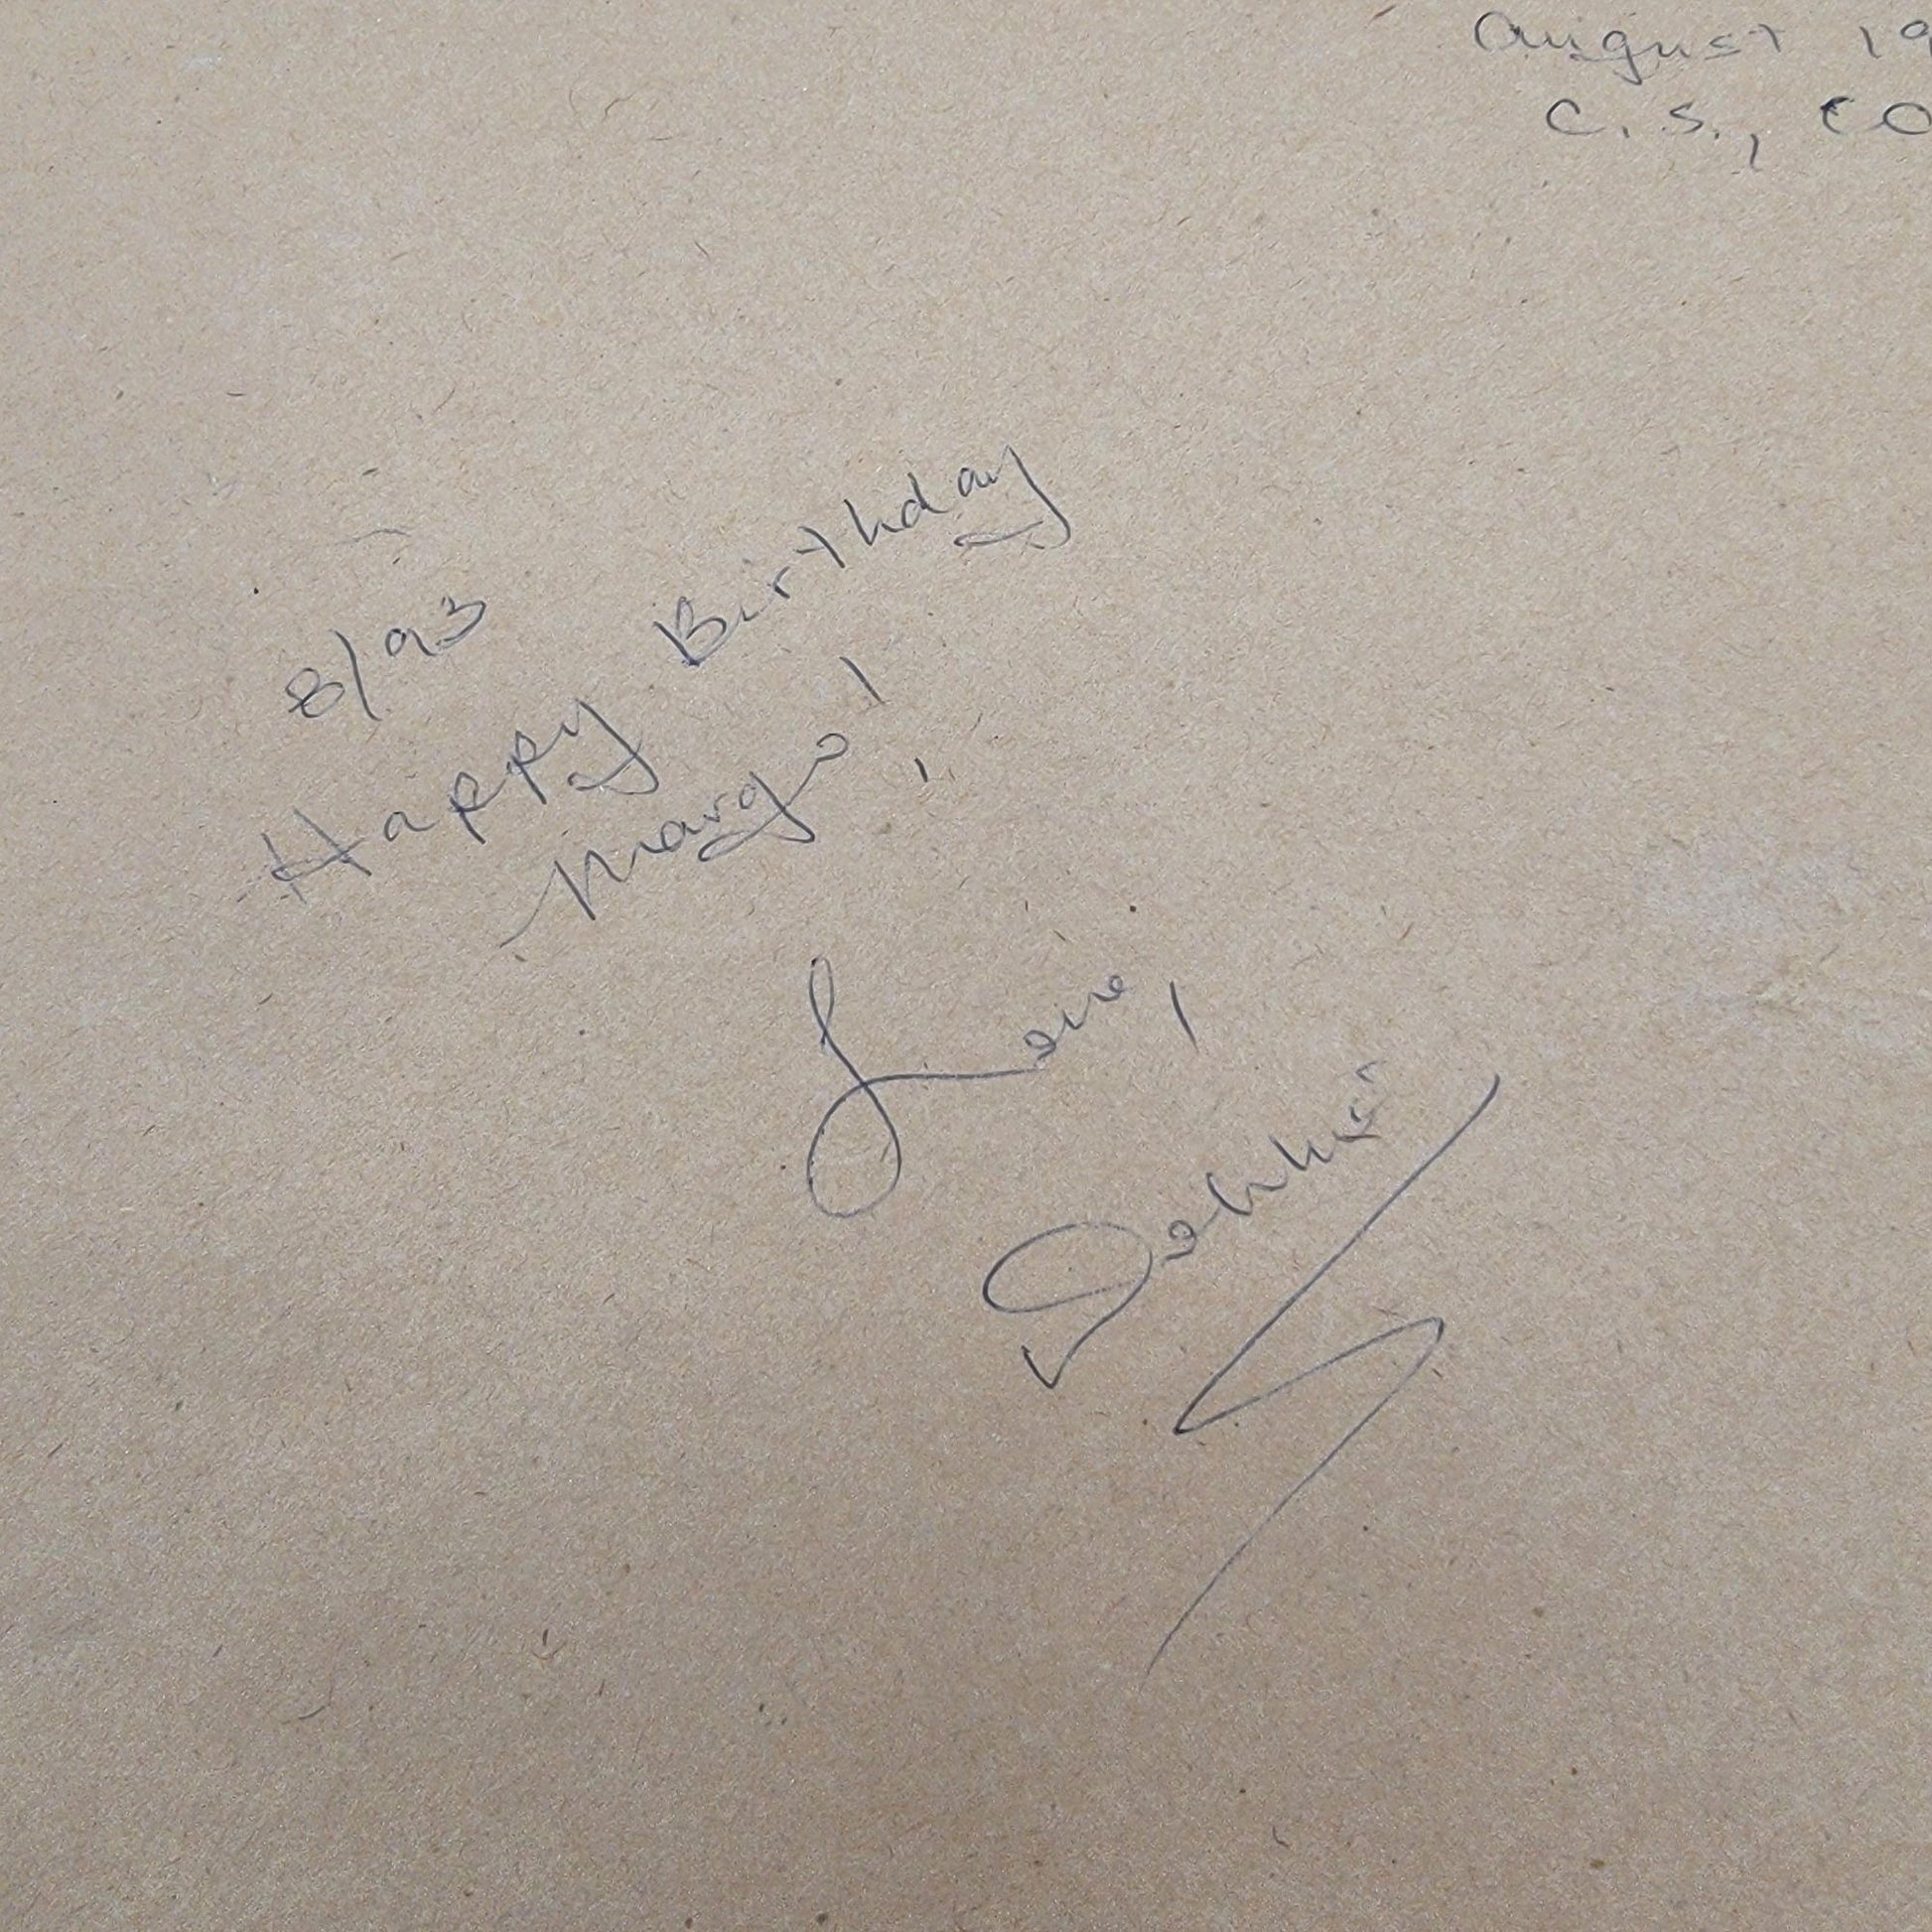 August 19
C.S., CO
8/93
Happy Birthday
Margo!
Love,